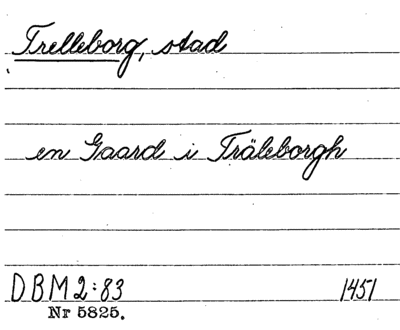 Trelleborg, stad
en Gaard i Träleborgh
DBM2:83 1451
Nr 5825.